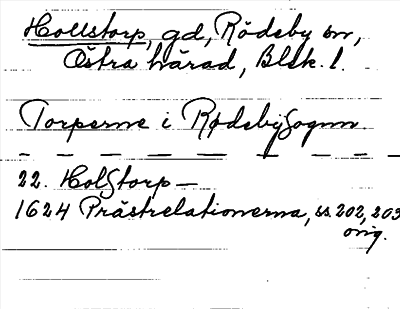 Hollstorp, gd, Rödeby sn,
Östra härad, Blek. l.
Torperne i Rødeby Sognn
22. Holstorp —
1624 Prästrelationerna, ss. 202, 203
orig.